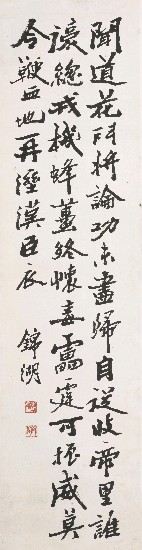 聞道花門將論功未盡歸自從收帝里誰
復總戎機蜂蠆終懷毒雷霆可振威莫
令鞭血地再濕漢臣衣
錦湖